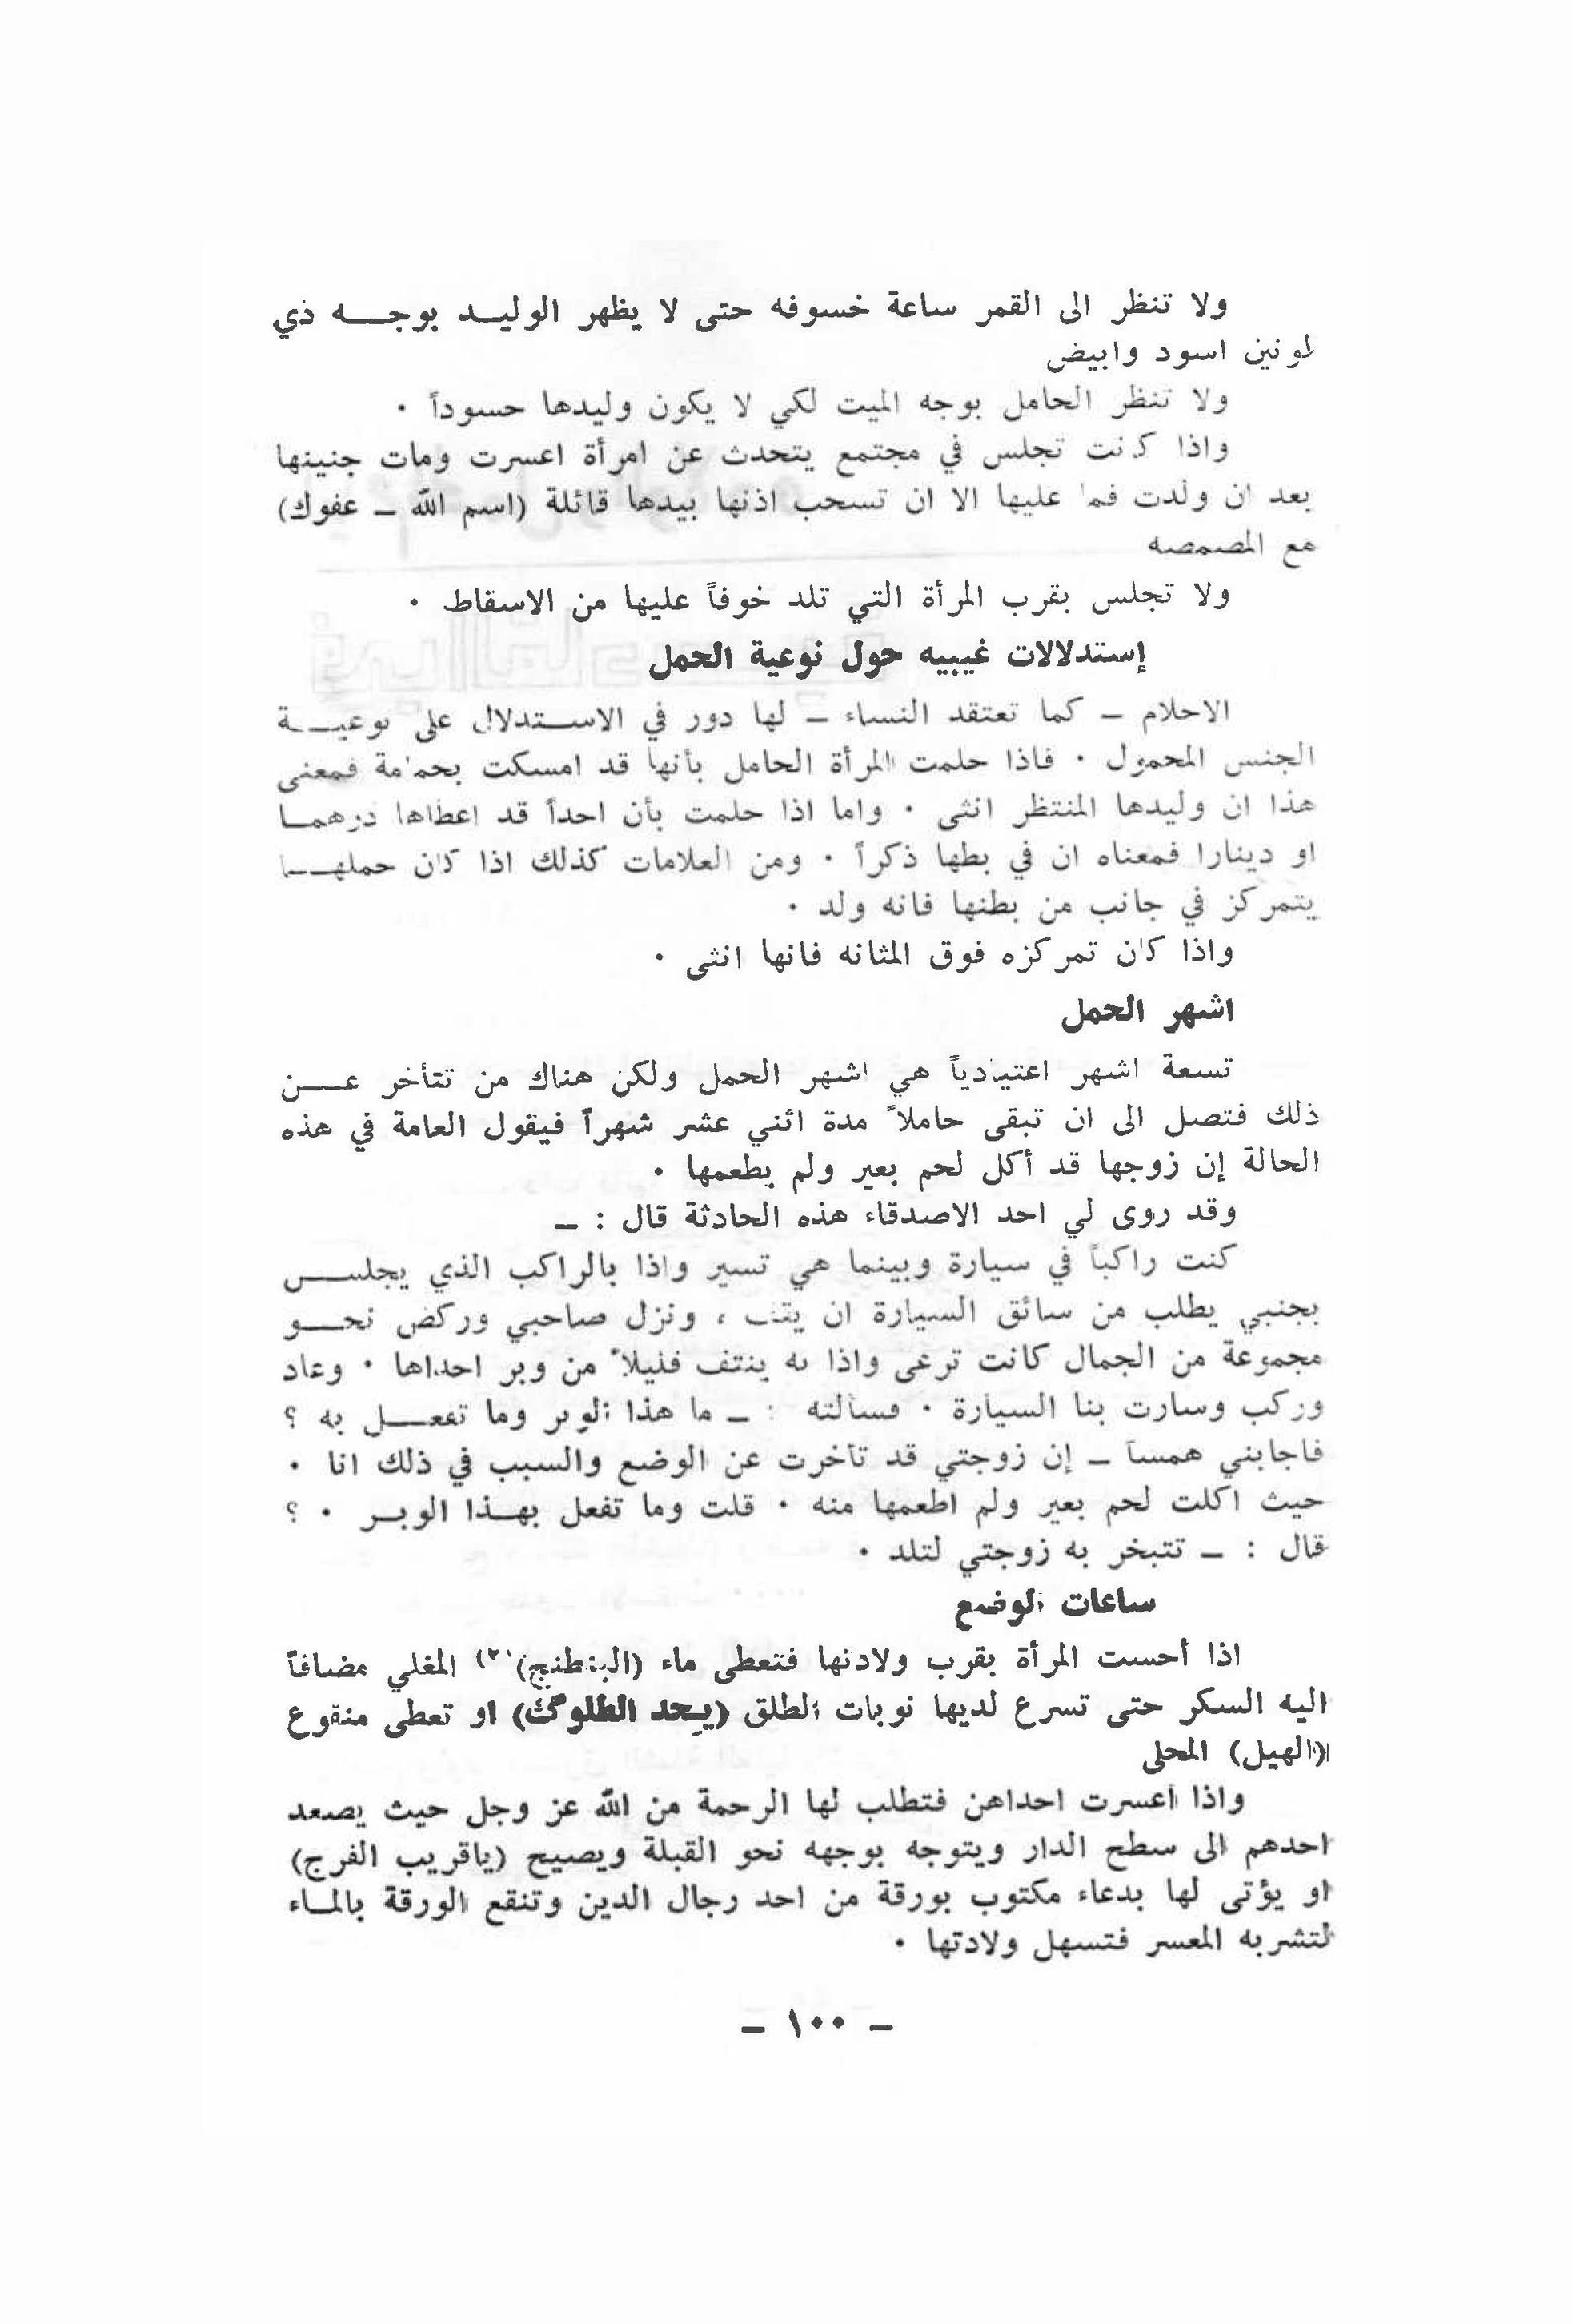 ولا تنظر الى القمر ساعة خسوفه حتى لا يظهر الوليد بوجه ذي
لونين اسود وابيض
ولا تنظر الحامل بوجه الميت لكي لا يكون وليدها حسوداً ٠
واذا كانت تجلس في مجتمع يتحدث عن امرأة اعسرت ومات جنينها
بعد ان ولدت فما عليها الا ان تسحب اذنها بيدها قائلة (اسم الله ــ عفوك)
مع المصمصه
ولا تجلس بقرب المرأة التي تلد خوفاً عليها من الاسقاط ٠
إستدلالات غيبيه حول نوعية الحمل
الاحلام ــ كما تعتقد النساء ــ لها دور في الاستدلال على نوعية
الجنس المحمول ٠ فاذا حلمت المرأة الحامل بأنها قد امسكت بحمامة فمعنى
هذا ان وليدها المنتظر انثى ٠ واما اذا حلمت بأن احداً قد اعطاها درهما
او دينارا فمعناه ان في بطها ذكراً ٠ ومن العلامات كذلك اذا كان حملها
يتمركز في جانب من بطنها فانه ولد ٠
واذا كان تمركزه فوق المثانه فانها انثى ٠
اشهر الحمل
تسعة اشهر اعتيادياً هي اشهر الحمل ولكن هناك من تتأخر عن
ذلك فتصل الى ان تبقى حاملاً مدة اثني عشر شهراً فيقول العامة في هذه
الحالة إن زوجها قد أكل لحم بعير ولم يطعمها ٠
وقد روى لي احد الاصدقاء هذه الحادثة قال : ــ
كنت راكباً في سيارة وبينما هي تسير واذا بالراكب الذي يجلس
بجنبي يطلب من سائق السيارة ان يقف ، ونزل صاحبي وركض نحو
مجموعة من الجمال كانت ترعى واذا به ينتف قليلاً من وبر احداها ٠ وعاد
وركب وسارت بنا السيارة ٠ فسألته : ــ ما هذا الوبر وما تفعل به ؟
فاجابني همساً ــ إن زوجتي قد تأخرت عن الوضع والسبب في ذلك انا ٠
حيث اكلت لحم بعير ولم اطعمها منه ٠ قلت وما تفعل بهذا الوبر ٠ ؟
قال : ــ تتبخر به زوجتي لتلد ٠
ساعات الوضع
اذا أحست المرأة بقرب ولادتها فتعطى ماء (البطنج) المغلي مضافاً
اليه السكر حتى تسرع لديها نوبات الطلق (يحد الطلوگ) او تعطى منقوع
(الهيل) المحلى
واذا اعسرت احداهن فتطلب لها الرحمة من الله عز وجل حيث يصعد
احدهم الى سطح الدار ويتوجه بوجهه نحو القبلة ويصيح (ياقريب الفرج)
او يؤتى لها بدعاء مكتوب بورقة من احد رجال الدين وتنقع الورقة بالماء
لتشربه المعسر فتسهل ولادتها ٠
ــ ١٠٠ ــ